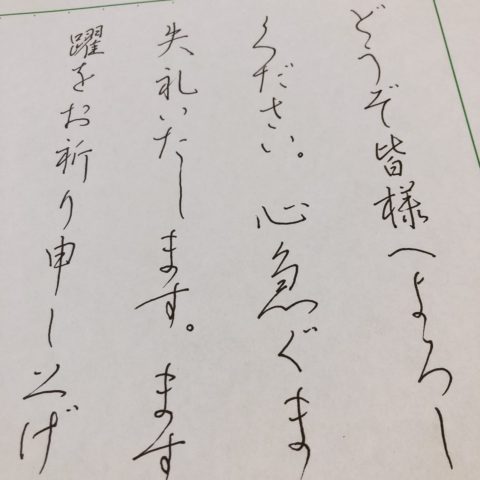 どうぞ皆様へよろし
ください。心急ぐま
失礼いたします。ます
躍をお祈り申し上げ